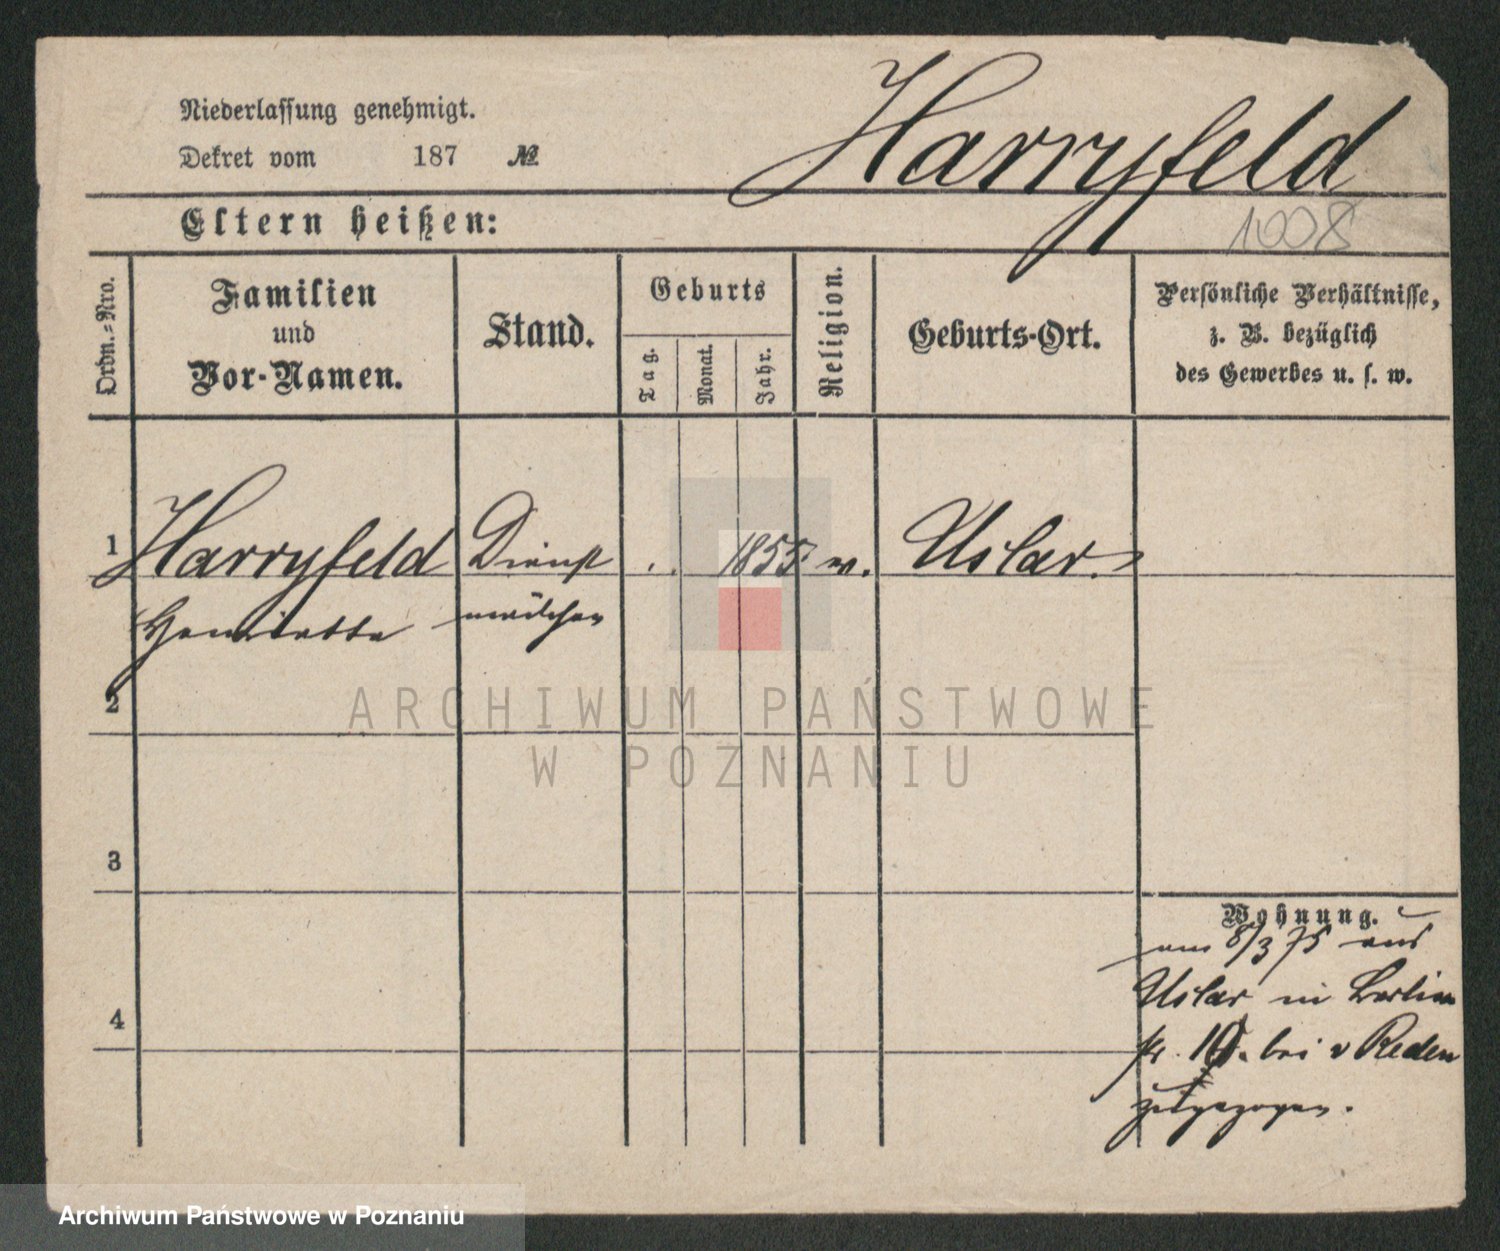 Niederlassung genehmigt.
Dekret vom 187 №
Harryfeld
1008
Eltern heißen:
Ordn.=Nro.
Familien
und
Vor-Namen.
Stand.
Geburts
Tag.
Monat.
Jahr.
Religion.
Geburts-Ort.
Persönliche Verhältnisse,
z. B. bezüglich
des Gewerbes u. s. w.
1 Harryfeld Dienst . . 1855 Uslar.
Henriette mädchen
2
ARCHIWUM PAŃSTWOWE
W POZNANIU
3
Wohnung.
am 8/3 75 aus
Uslar in Berlin
bei v Reden
zugezogen.
4
Archiwum Państwowe w Poznaniu